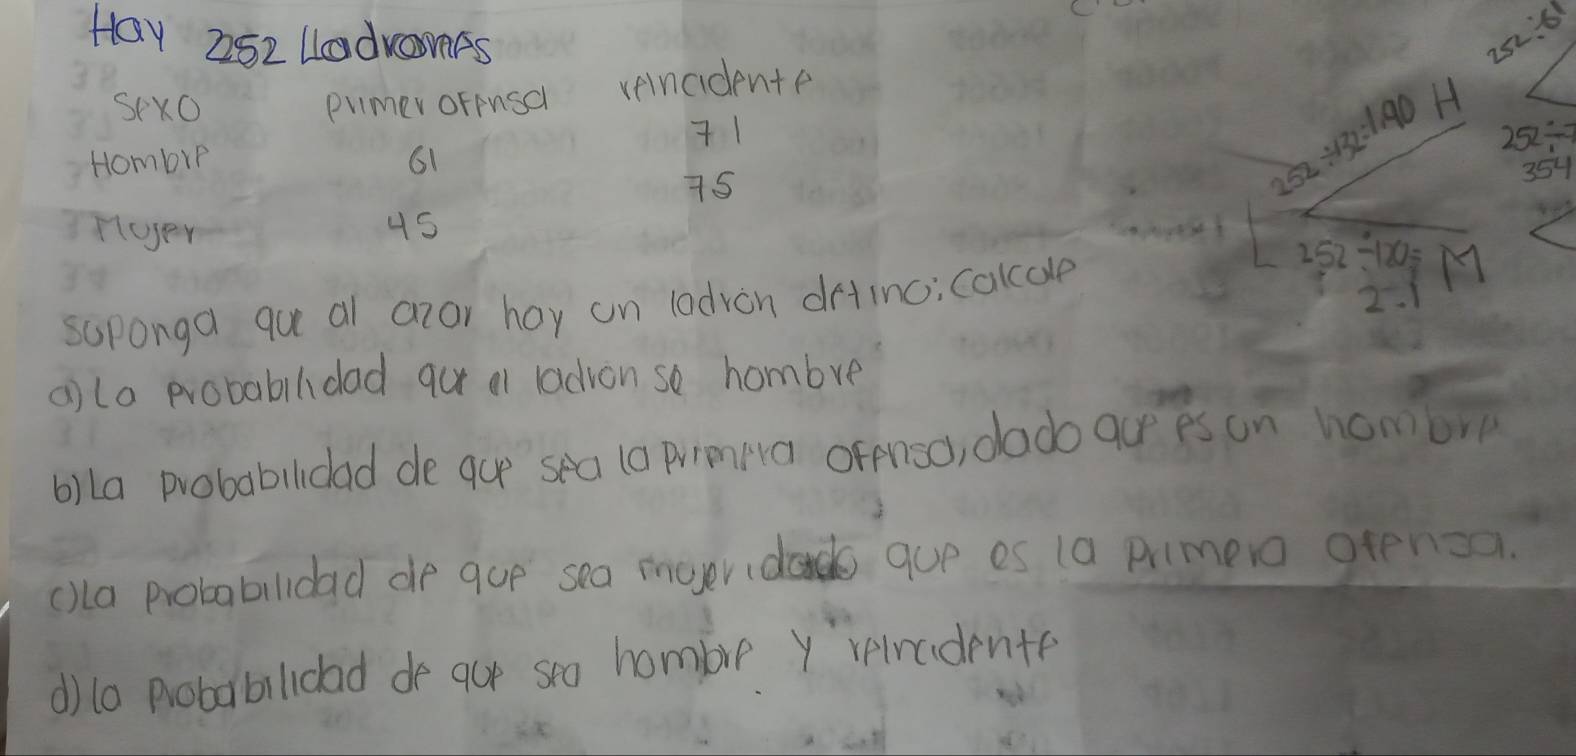 Hay 252 Ladrones
Sexo primer ofensa reincidente
Hombre 61 71
Mujer 45 75
suponga que al azar hay un ladrón detino: calcule
a) la probabilidad que el ladron se hombre
b) La probabilidad de que sea la primera ofensa, dado que es un hombre
c) La probabilidad de que sea mujer, dado que es la primera ofensa.
d) la probabilidad de que sea hombre y reincidente
252÷132=1.90 H
L
252÷120= M
2.1
252÷61
252÷7
354